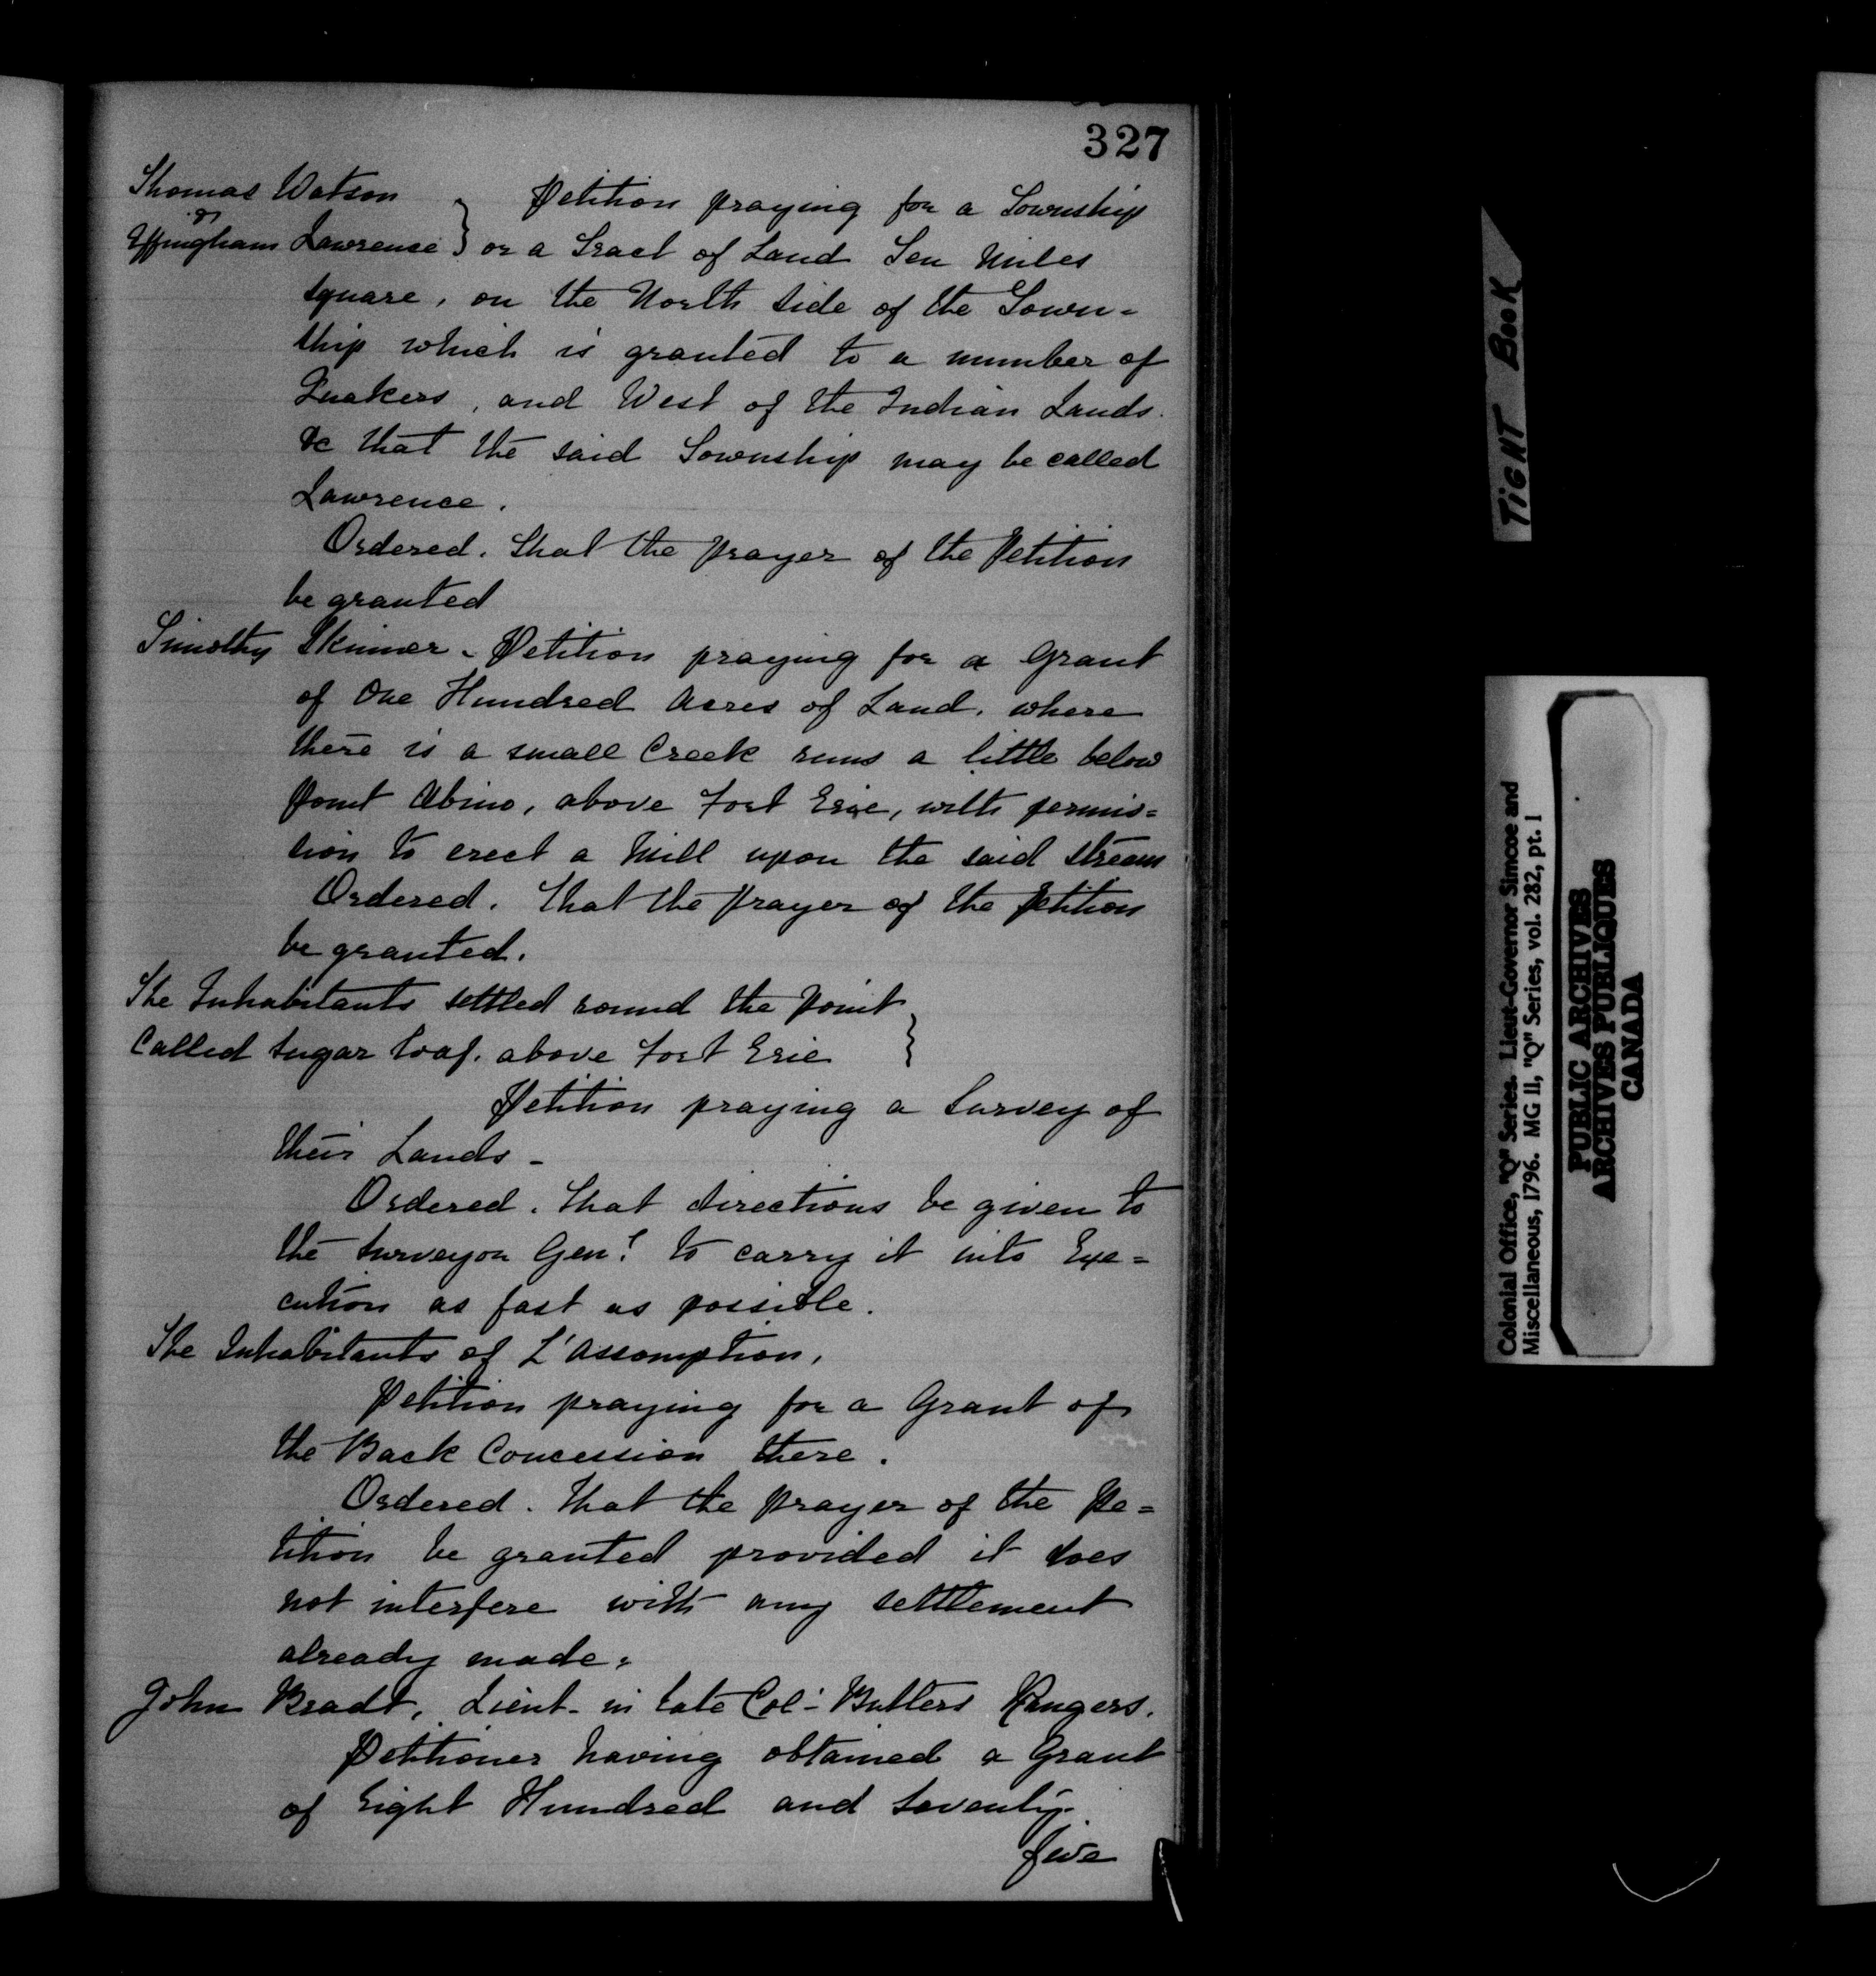 327
Thomas Watson } Petition praying for a Township
&
Effingham Lawrence } or a Tract of Land Ten Miles
square, on the North side of the Town=
ship which is granted to a number of
Quakers, and West of the Indian Lands.
&c that the said Township may be called
Lawrence.
Ordered. That the prayer of the Petition
be granted
Timothy Skinner - Petition praying for a Grant
of One Hundred Acres of Land, where
there is a small Creek runs a little below
Point Abino, above Fort Erie, with permis=
sion to erect a Mill upon the said stream
Ordered. That the prayer of the Petition
be granted.
The Inhabitants settled round the Point }
Called Sugar Loaf, above Fort Erie }
Petition praying a Survey of
their Lands -
Ordered. That directions be given to
the Surveyor Genl. to carry it into Exe=
cution as fast as possible.
The Inhabitants of L'Assomption,
Petition praying for a Grant of
the Back Concession there.
Ordered. That the prayer of the Pe=
tition be granted provided it does
not interfere with any settlement
already made.
John Bradt, Lieut- in late Col- Butlers Rangers.
Petitioner having obtained a Grant
of Eight Hundred and Seventy-
five
TIGHT BOOK
Colonial Office, "Q" Series. Lieut-Governor Simcoe and
Miscellaneous, 1796. MG 11, "Q" Series, vol. 282, pt. 1
PUBLIC ARCHIVES
ARCHIVES PUBLIQUES
CANADA